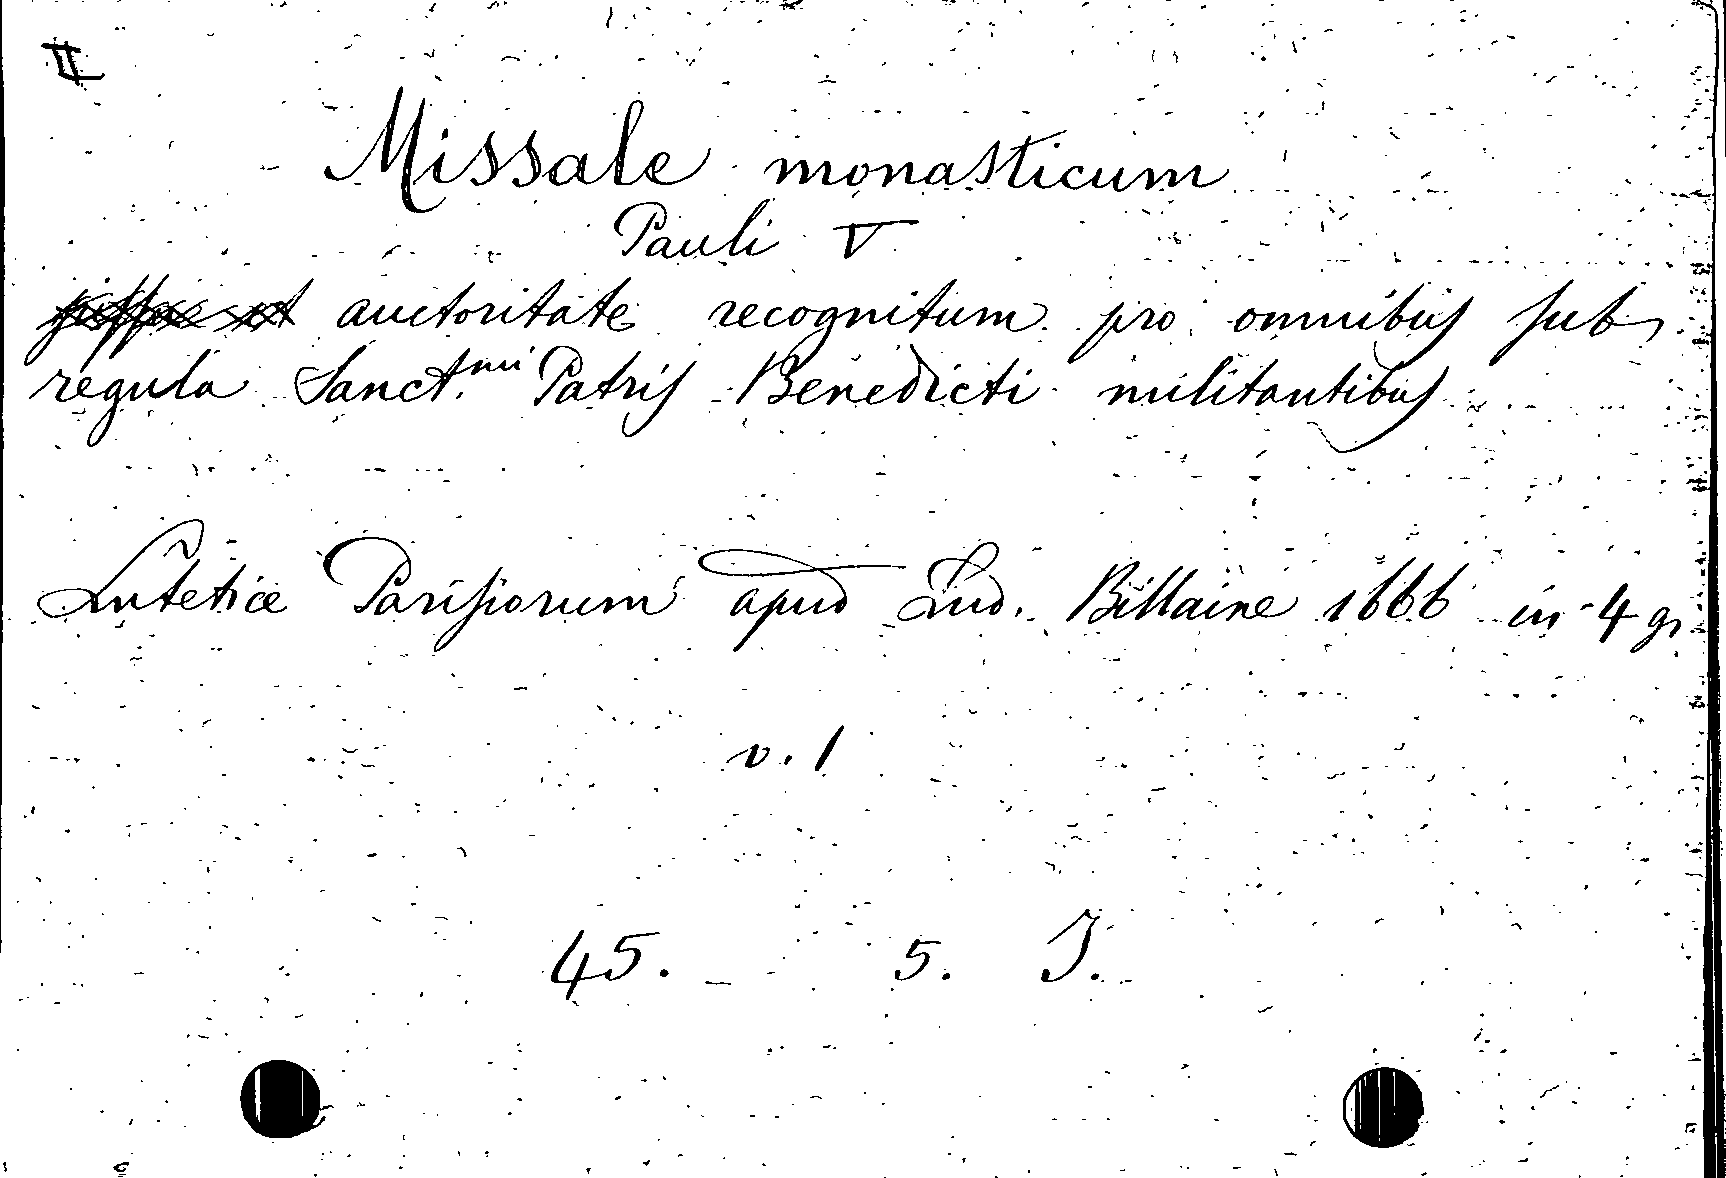 II
Missale monasticum
Pauli V
auctoritate recognitum pro omnibus sub
regula Sanct.mi Patris Benedicti militantibus
Lutetiæ Parisiorum apud Lud. Billaine 1666 in-4 gr
v. 1
45. 5. J.